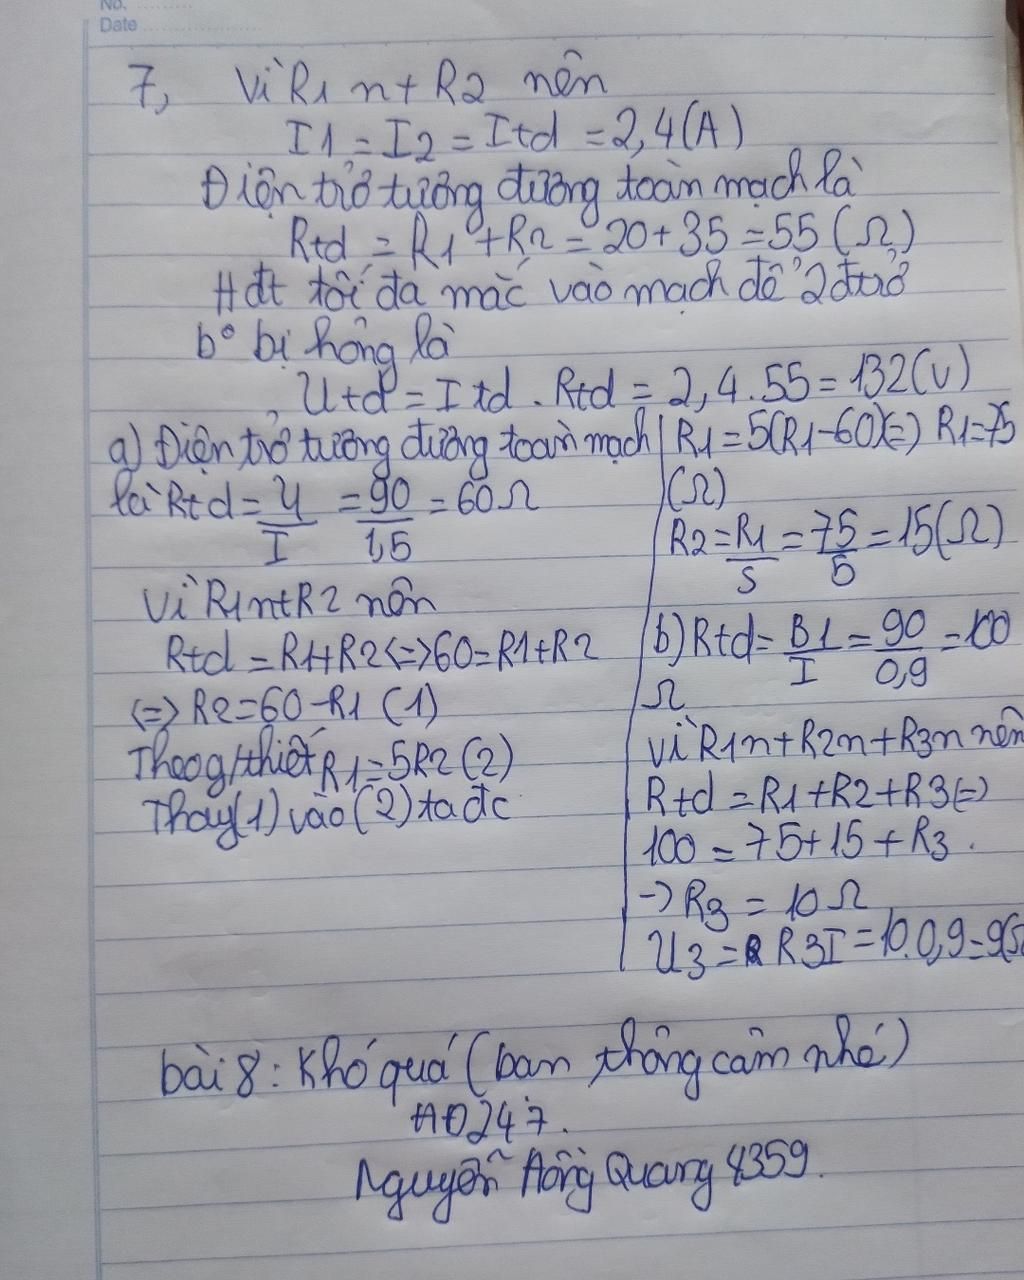 No.
Date
7, Vì R1 nt R2 nên
I1 = I2 = Itd = 2,4(A)
Điện trở tương đương toàn mạch là
Rtd = R1 + R2 = 20 + 35 = 55 (Ω)
Hđt tối đa mắc vào mạch để 2 đtrở
bº bị hỏng là
Utd = Itd . Rtd = 2,4 . 55 = 132(V)
a) Điện trở tương đương toàn mạch
là Rtd = U/I = 90/1,5 = 60Ω
Vì R1ntR2 nên
Rtd = R1+R2 <=> 60=R1+R2
<=> R2=60-R1 (1)
Theo g/thiết R1=5R2 (2)
Thay (1) vào (2) ta đc
R1=5(R1-60)(=) R1=75
(Ω)
R2=R1/5 = 75/5 = 15(Ω)
b) Rtd= B1/I = 90/0,9 = 100
Ω
vì R1nt R2nt R3n nên
Rtd = R1+R2+R3(=)
100 = 75+15+R3.
-> R3 = 10Ω
U3 = R3I = 10.0,9=9(
bài 8: Khó quá (bạn thông cảm nhé)
HĐ247.
Nguyễn Hồng Quang 4359.